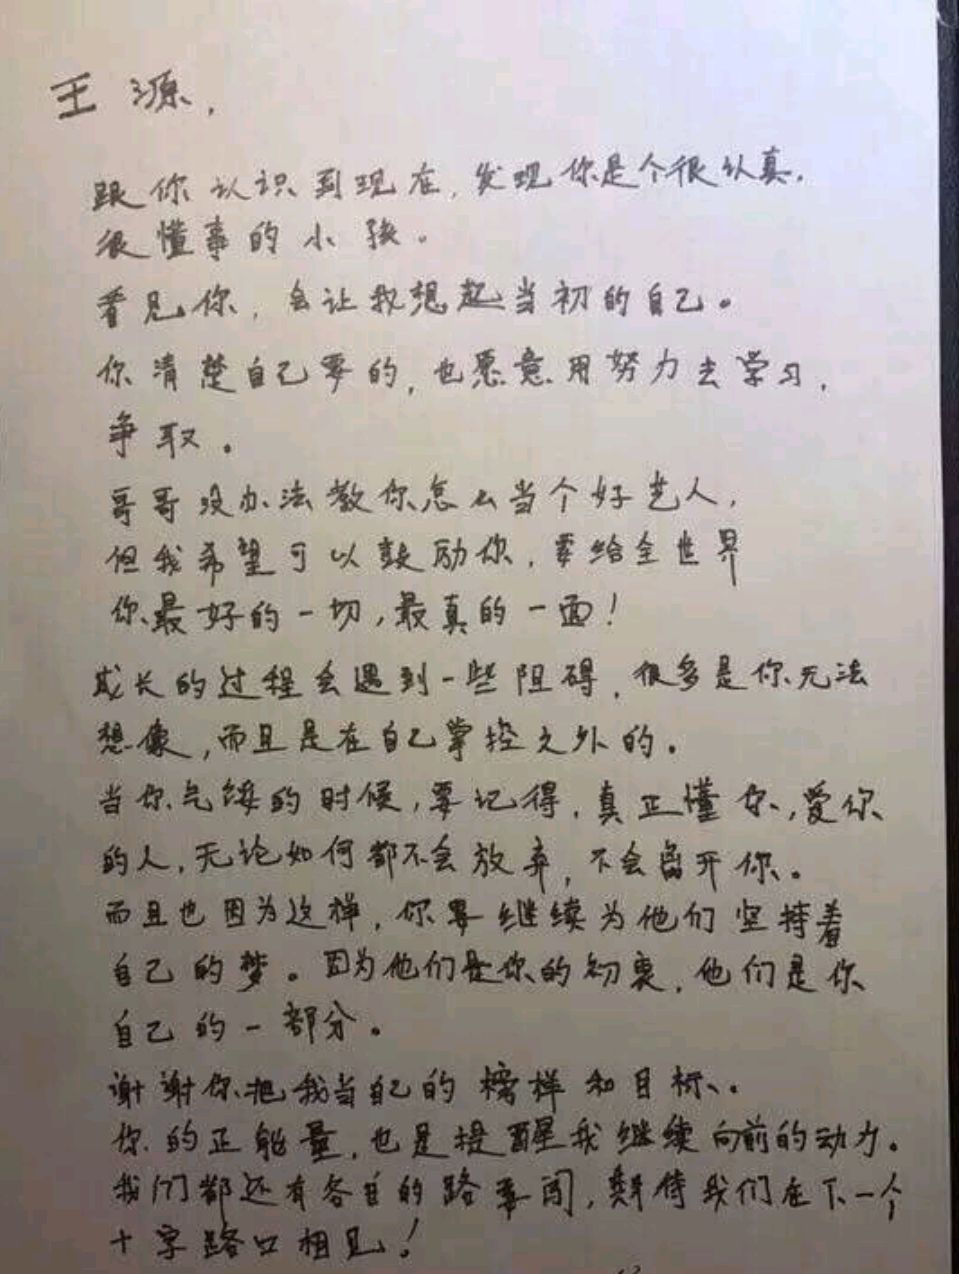 王源，
跟你认识到现在，发现你是个很认真，
很懂事的小孩。
看见你，会让我想起当初的自己。
你清楚自己要的，也愿意用努力去学习，
争取。
哥哥没办法教你怎么当个好艺人，
但我希望可以鼓励你，要给全世界
你最好的一切，最真的一面！
成长的过程会遇到一些阻碍，很多是你无法
想像，而且是在自己掌控之外的。
当你气馁的时候，要记得，真正懂你，爱你
的人，无论如何都不会放弃，不会离开你。
而且也因为这样，你要继续为他们坚持着
自己的梦。因为他们是你的初衷，他们是你
自己的一部分。
谢谢你把我当自己的榜样和目标。
你的正能量，也是提醒我继续向前的动力。
我们都还有各自的路要闯，期待我们在下一个
十字路口相见！